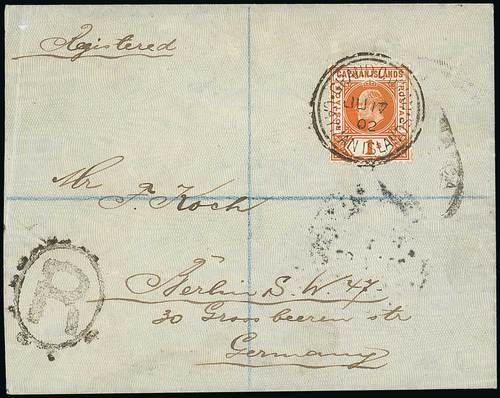 Registered
CAYMAN ISLANDS
POSTAGE
POSTAGE
1/-
JU 17
02
Mr
F. Koch
Berlin S. W. 47.
30 Gross beeren str
Germany
R